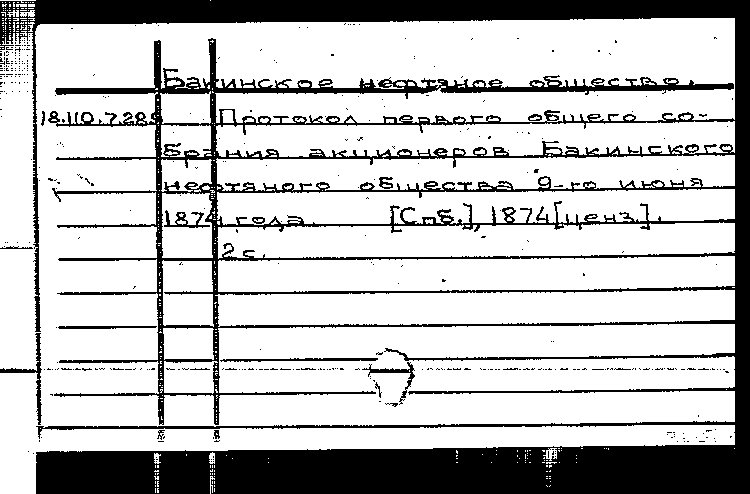 Бакинское нефтяное общество.
18.110.7.289 Протокол первого общего со-
брания акционеров Бакинского
нефтяного общества 9-го июня
1874 года. [Спб.], 1874[ценз.].
2 с.